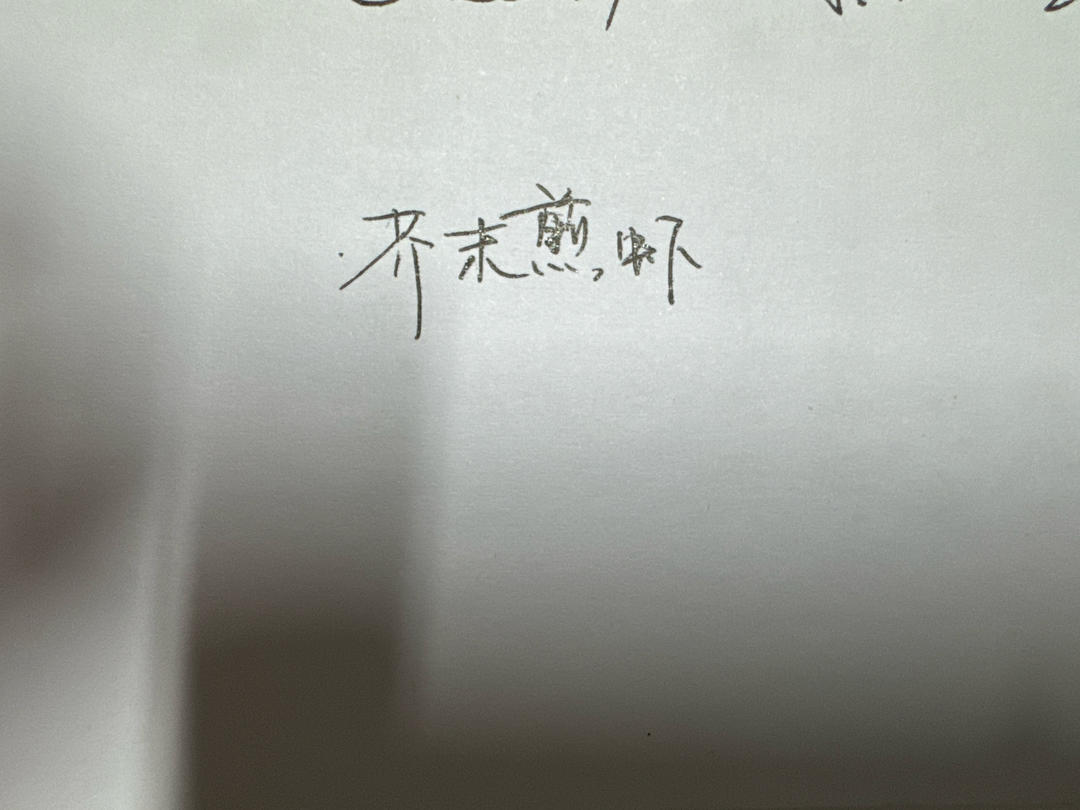 芥末煎虾